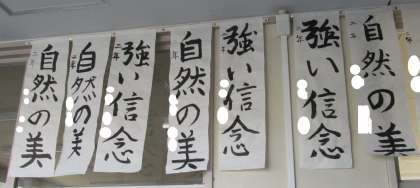 二年
自然の美
二年
自然の美
二年
強い信念
自然の美
強い信念
年
強い信念
自然の美